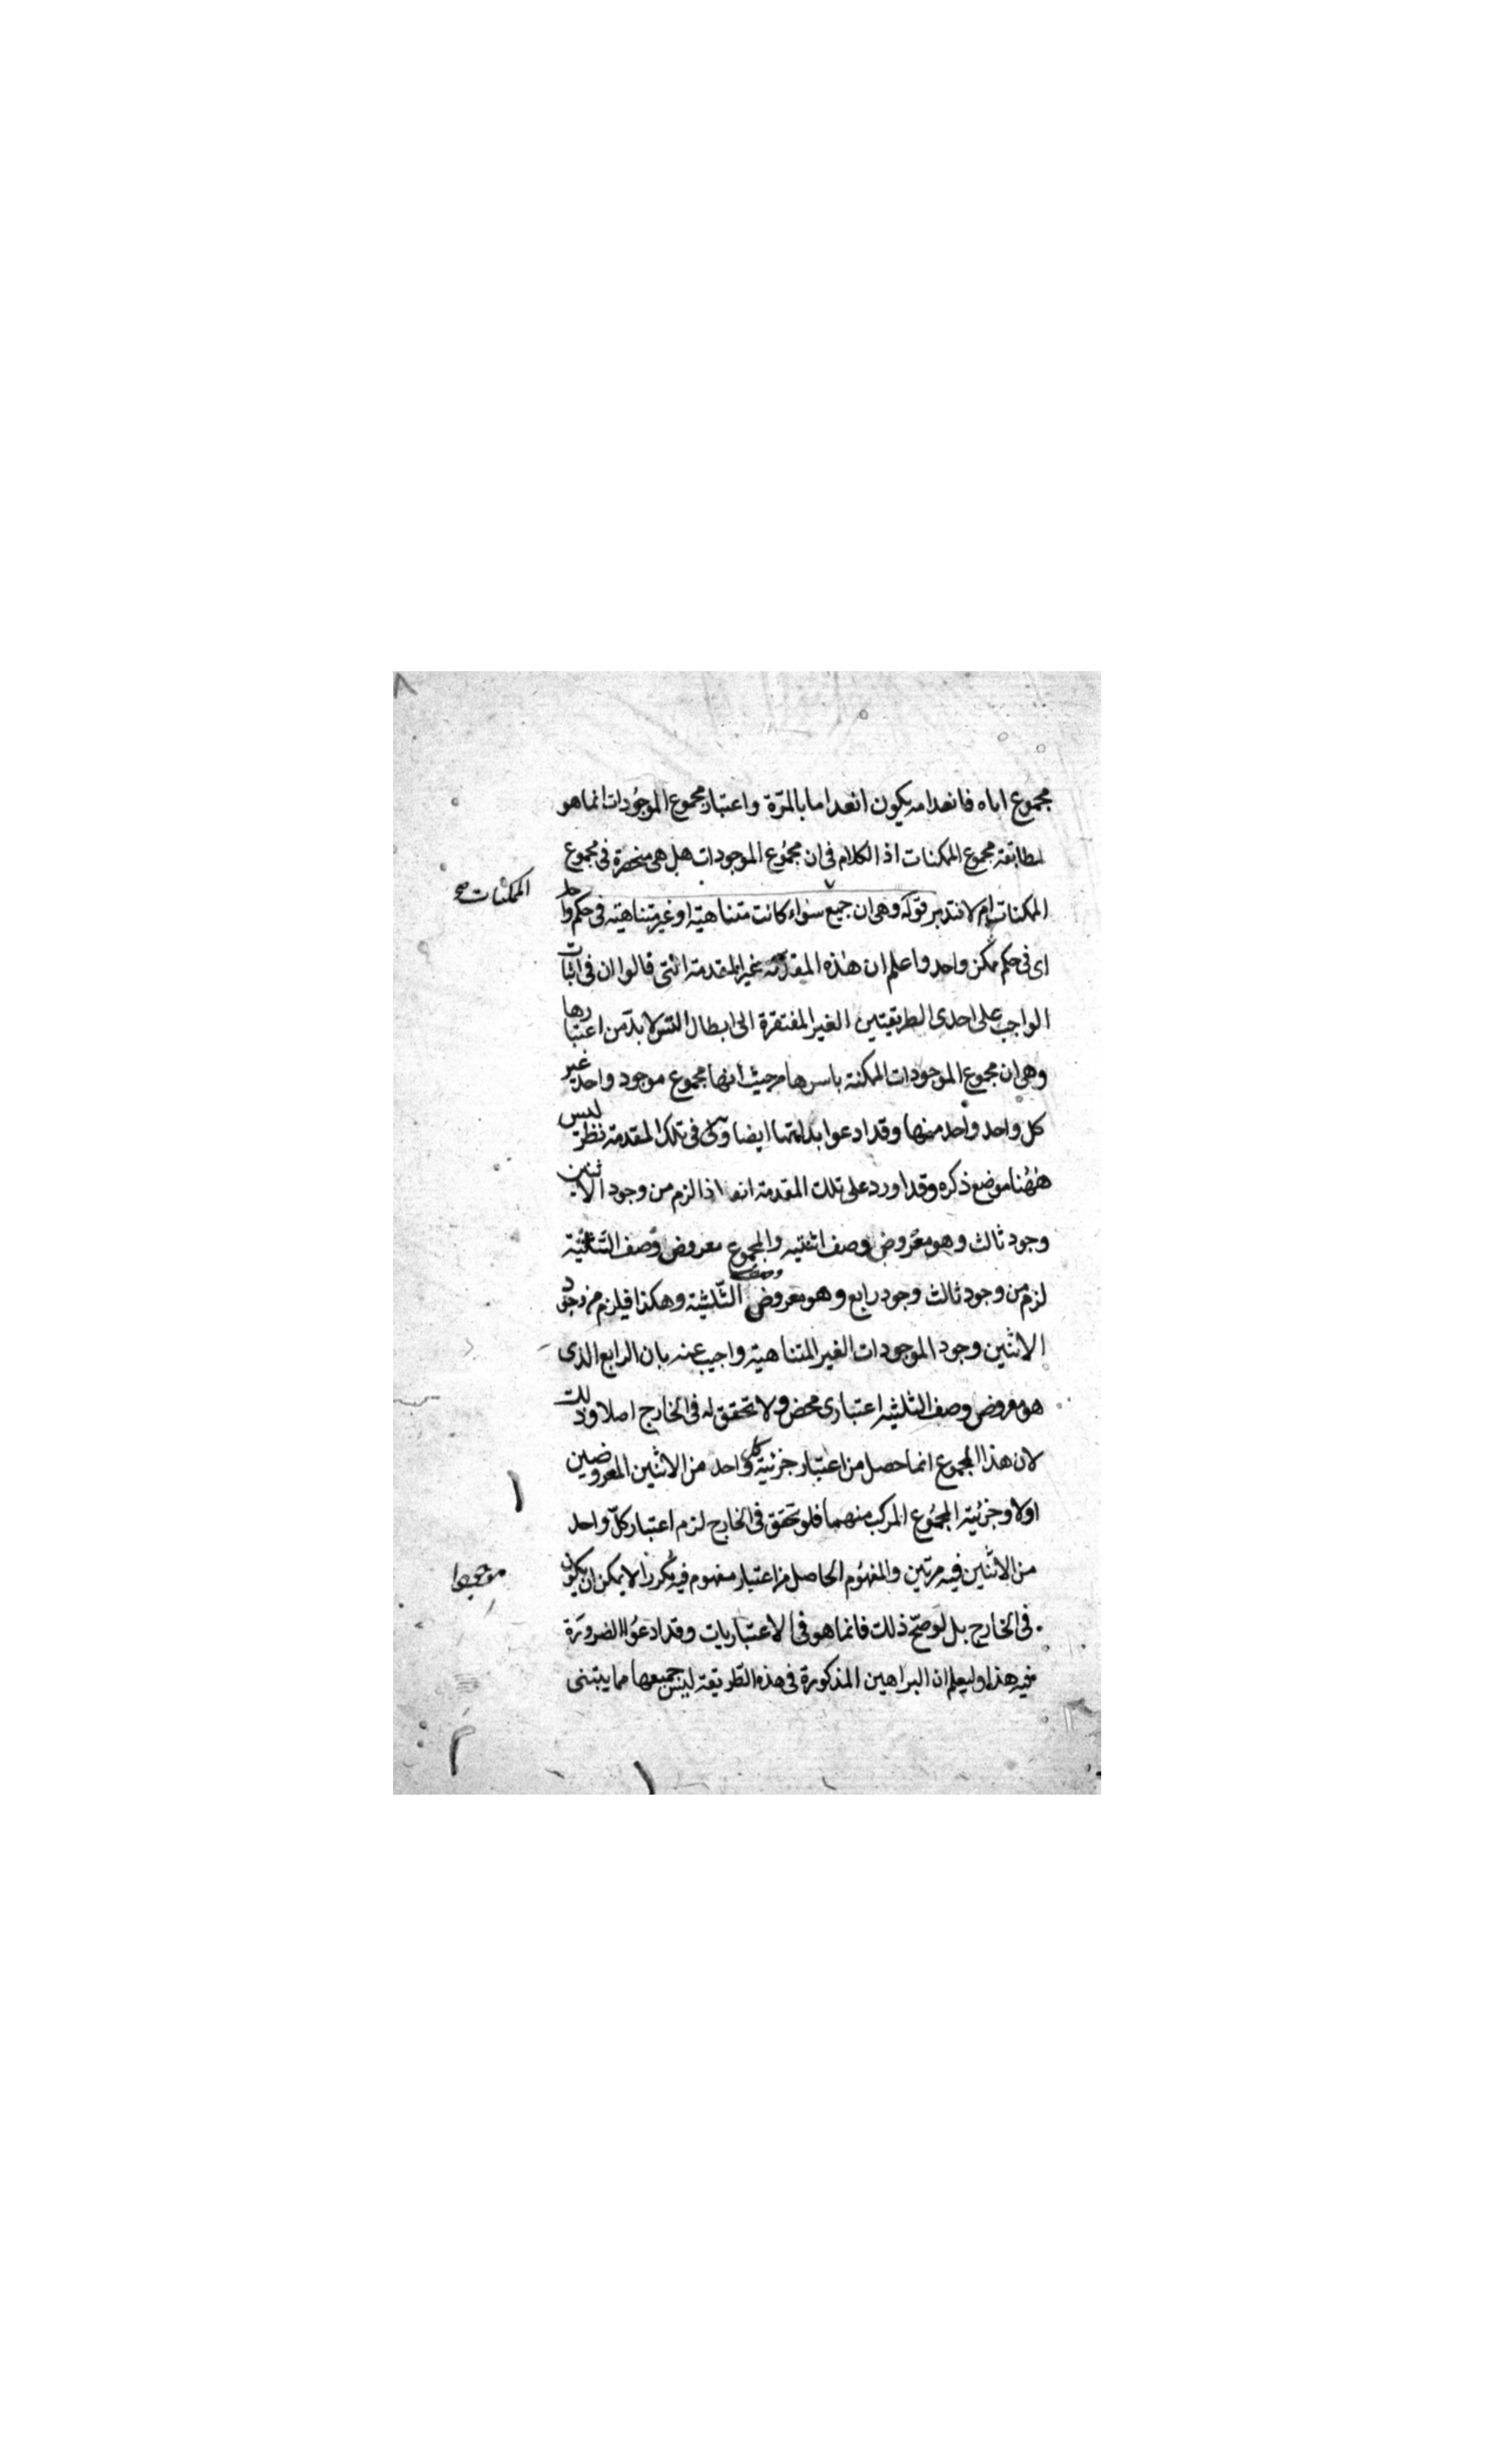 مجموع اياه فانعدامه يكون انعداما بالمرّة واعتبار مجموع الموجودات انما هو
لمطابقة مجموع الممكنات اذ الكلام فى ان مجموع الموجودات هل هى منحصرة فى مجموع
الممكنات ام لا فتدبر قوله وهى ان جميع سواء كانت متناهية او غير متناهية فى حكم واحد
الممكنات صح
اى فى حكم ممكن واحد واعلم ان هذه المقدمة غير المقدمة التى قالوا ان فى اثبات
الواجب على احدى الطريقيتين الغير المفتقرة الى ابطال التس لا بدّ من اعتبارها
وهى ان مجموع الموجودات الممكنة باسرها من حيث انها مجموع موجود واحد غير
كل واحد واحد منها وقد ادعوا بداهتها ايضا ولى فى تلك المقدمة نظر ليس
ههنا موضع ذكره وقد اورد على تلك المقدمة انه اذا لزم من وجود الاثنين
وجود ثالث وهو معروض وصف اثنية والمجموع معروض وصف الثلثية
لزم من وجود ثالث وجود رابع وهو معروض وصف الثلثية وهكذا فيلزم من وجود
الاثنين وجود الموجودات الغير المتناهية واجيب عنه بان الرابع الذى
هو معروض وصف الثلثية اعتبارى محض ولا تحقق له فى الخارج اصلا وذلك
لان هذا المجموع انما حصل من اعتبار جزئية كل واحد من الاثنين المعروضين
اولا وجزئية المجموع المركب منهما فلو تحقق فى الخارج لزم اعتبار كلّ واحد
من الاثنين فيه مرتين والمفهوم الحاصل من اعتبار مفهوم فيه مكررا لا يمكن ان يكون
موجودا
فى الخارج بل لو صحّ ذلك فانما هو فى الاعتباريات وقد ادعوا الضرورة
فيه هذا وليعلم ان البراهين المذكورة فى هذه الطريقة ليس جميعها مما يبتنى